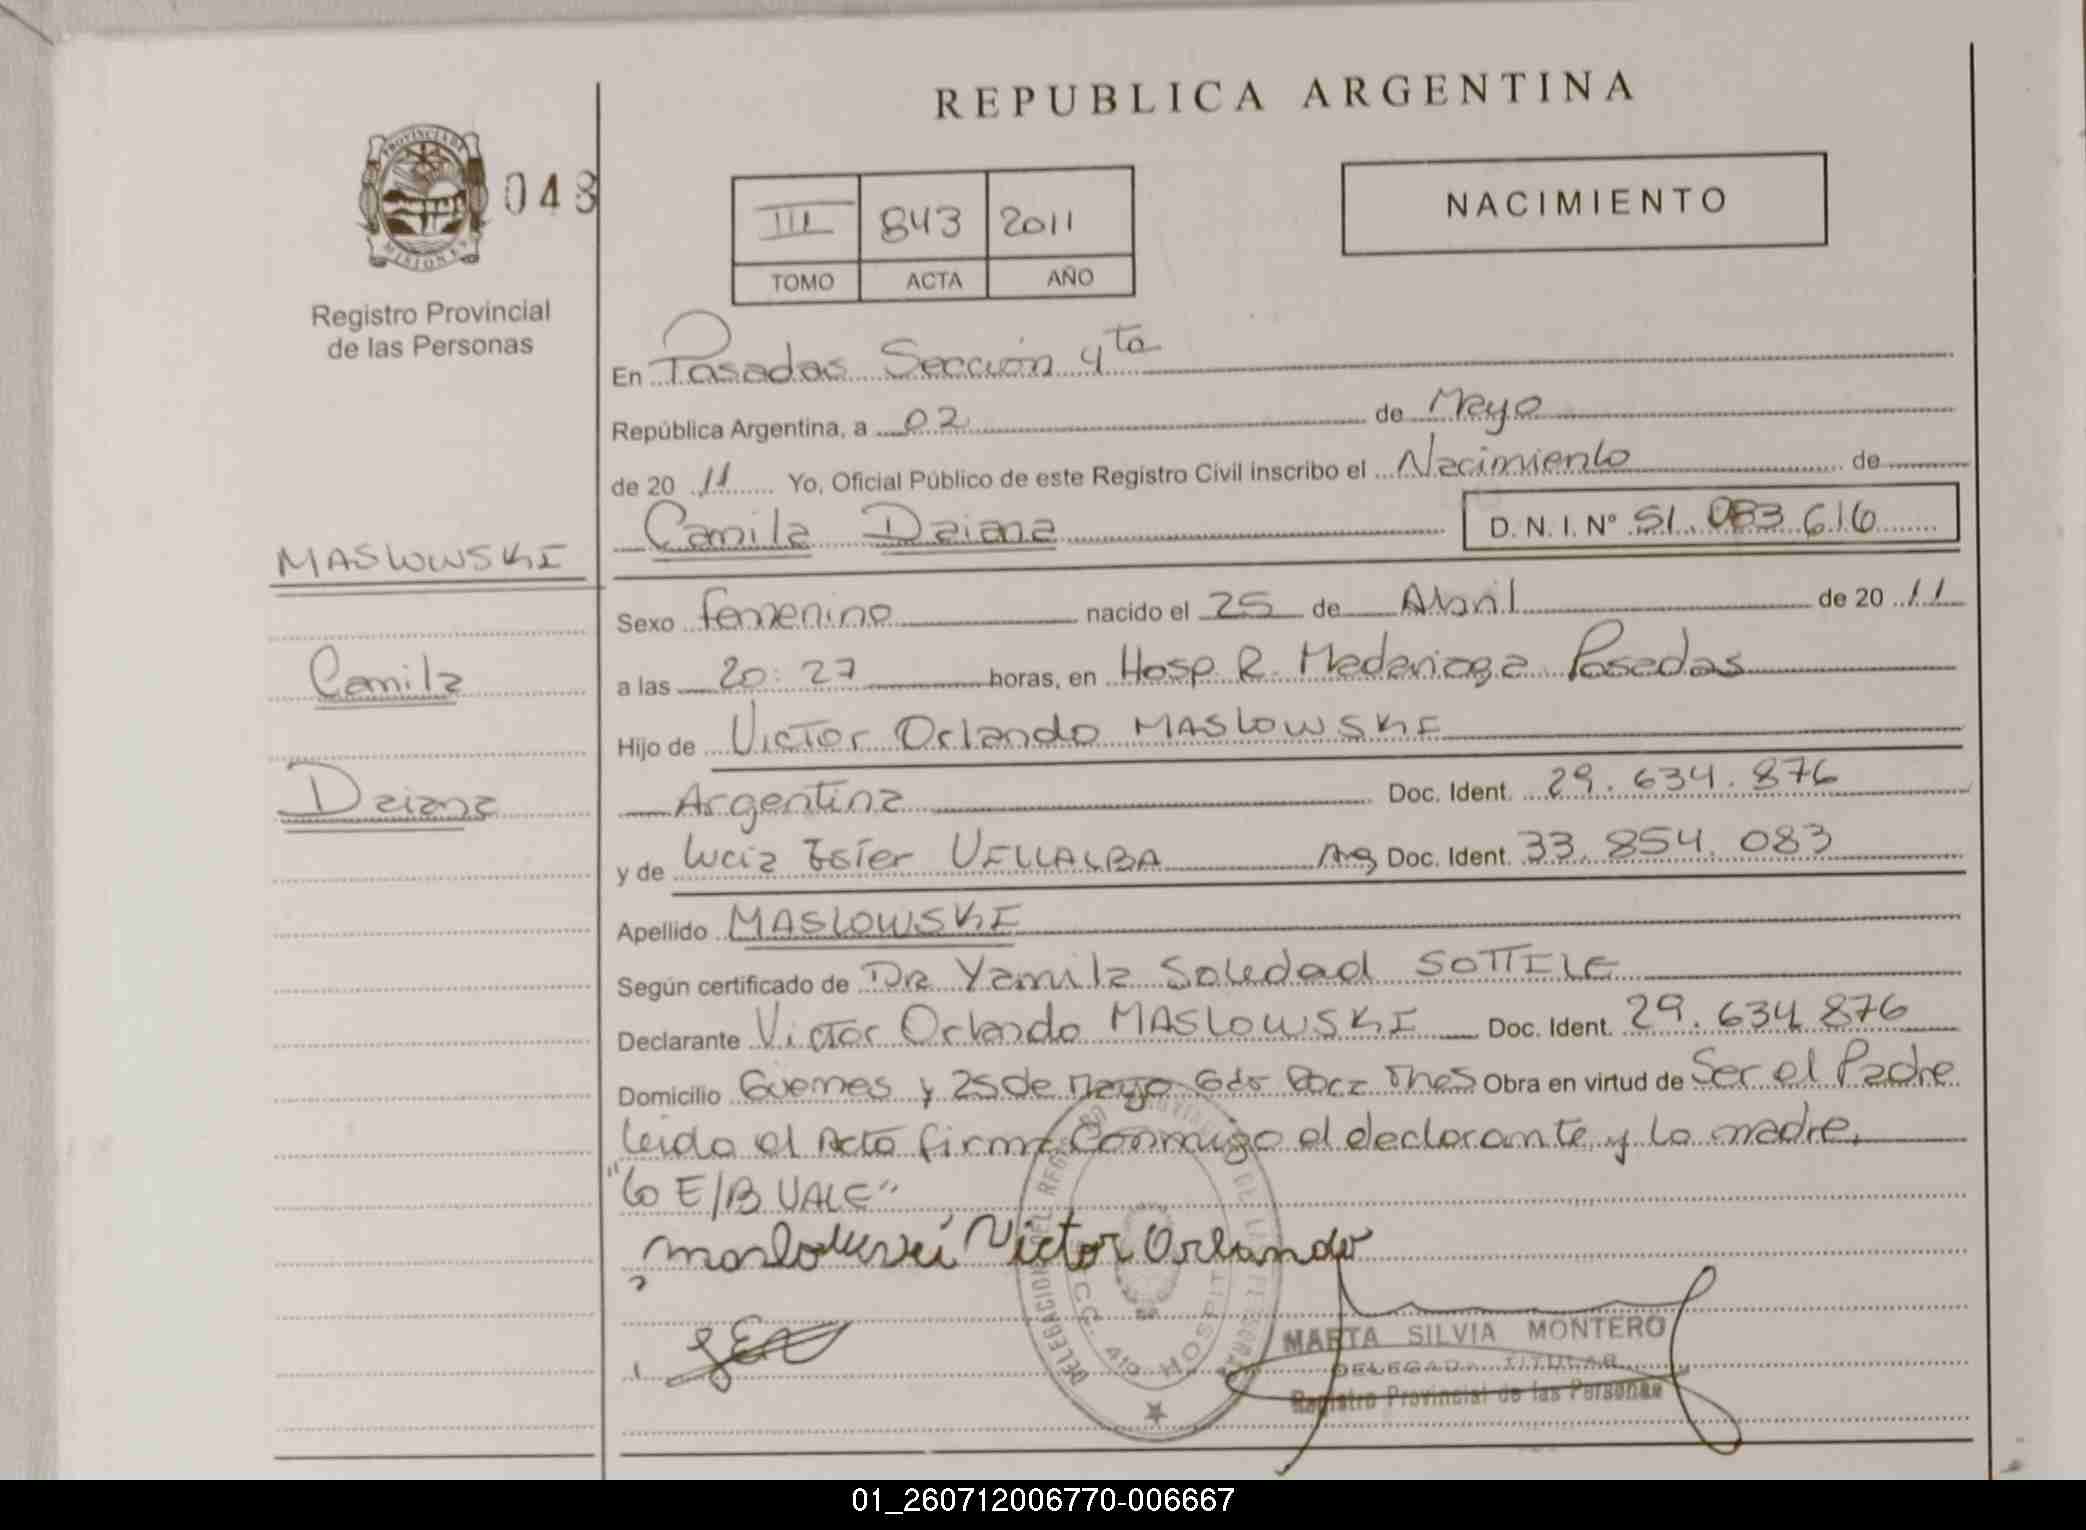 REPUBLICA ARGENTINA
PROVINCIA DE
MISIONES
048
Registro Provincial
de las Personas
III 843 2011
TOMO ACTA AÑO
NACIMIENTO
En Posadas Sección 4ta
República Argentina, a 02 de Mayo
de 20 11 Yo, Oficial Público de este Registro Civil inscribo el Nacimiento de
Camila Daiana D. N. I. Nº 51.083.616
MASLOWSKI
Camila
Daiana
Sexo femenino nacido el 25 de Abril de 20 11
a las 20:27 horas, en Hosp R. Madariaga Posadas
Hijo de Victor Orlando MASLOWSKI
Argentina Doc. Ident. 29.634.876
y de Lucia Ester VILLALBA Arg Doc. Ident. 33.854.083
Apellido MASLOWSKI
Según certificado de Dra Yamila Soledad SOTTILE
Declarante Victor Orlando MASLOWSKI Doc. Ident. 29.634.876
Domicilio Guemes y 25 de Mayo Gdor Roca Mnes Obra en virtud de Ser el Padre
Leida el Acta firma Conmigo el declarante y la madre.
"Lo E/B VALE"
Maslowski Victor Orlando
MARTA SILVIA MONTERO
DELEGADA TITULAR
Registro Provincial de las Personas
01_260712006770-006667